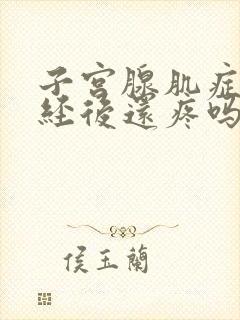 子宫腺肌症
经後还疼吗
侯玉兰